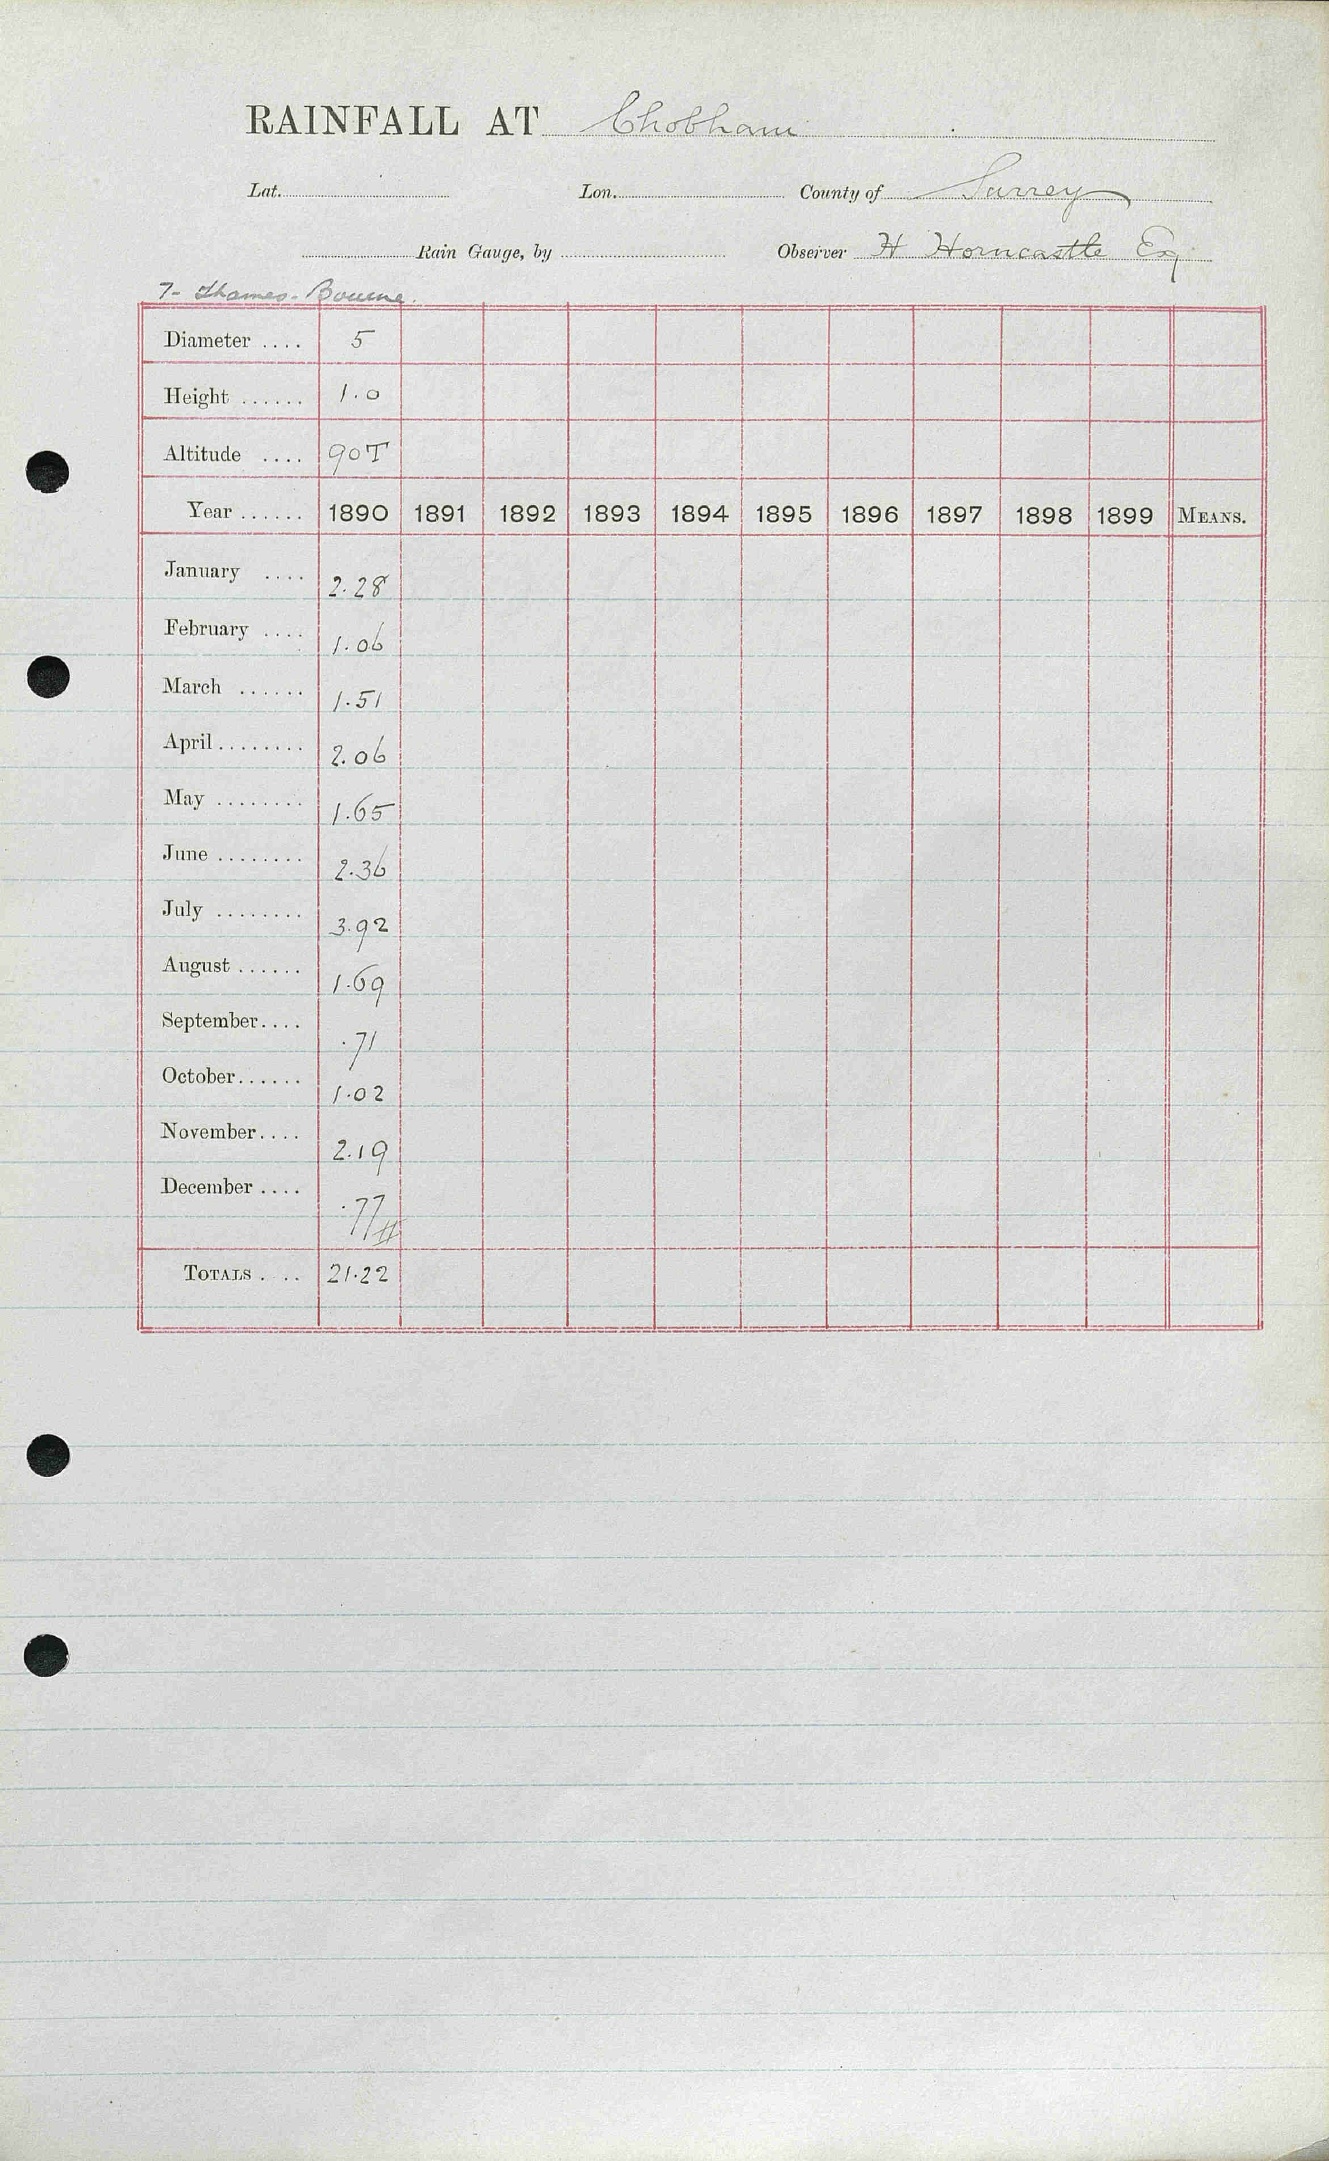 RAINFALL AT Chobham
Lat. Lon. County of Surrey
Rain Gauge, by Observer H Horncastle Esq
7- Thames-Bourne.
Diameter .... 5
Height ...... 1.0
Altitude .... 90T
Year ...... 1890 1891 1892 1893 1894 1895 1896 1897 1898 1899 MEANS.
January .... 2.28
February .... 1.06
March ...... 1.51
April ........ 2.06
May ........ 1.65
June ........ 2.36
July ........ 3.92
August ...... 1.69
September .... .71
October ...... 1.02
November .... 2.19
December .... .77
TOTALS . .. 21.22